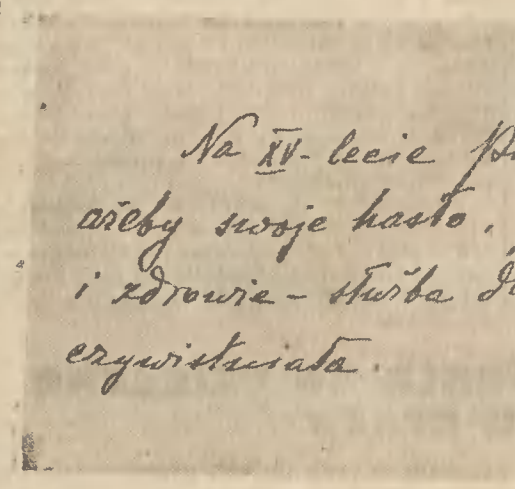 Na XV-lecie
ażeby swoje hasło,
i zdrowie - służba
czywistniała.